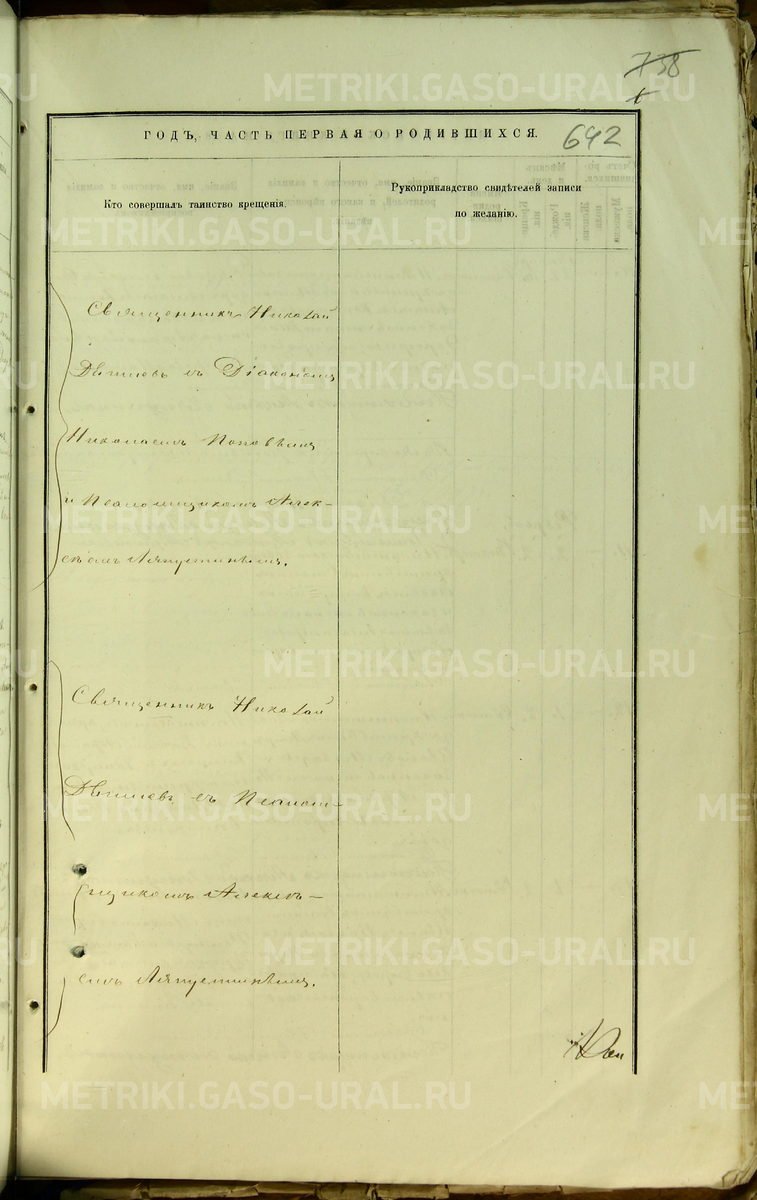 738
642
ГОДЪ, ЧАСТЬ ПЕРВАЯ О РОДИВШИХСЯ.
Кто совершалъ таинство крещенія.
Рукоприкладство свидѣтелей записи
по желанію.
Священникъ Николай
съ Діакономъ
Николаемъ Поповымъ
и Псаломщикомъ Алек-
сѣемъ Ляпустинымъ.
Священникъ Николай
съ Псалом-
щикомъ Алексѣ-
емъ Ляпустинымъ.
METRIKI.GASO-URAL.RU